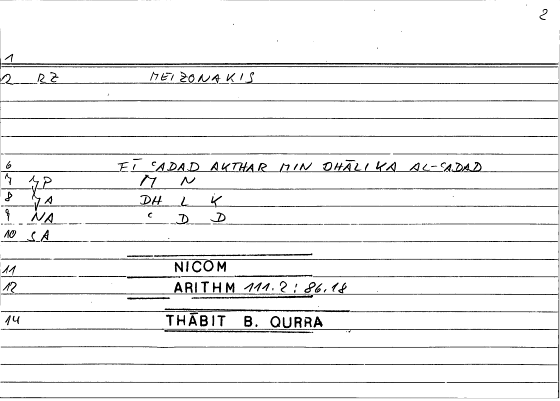 2
1
2 RZ MEIZONAKIS
6 FĪ ʿADAD AKTHAR MIN DHĀLIKA AL-ʿADAD
7 MP M N
8 MA DH L K
9 NA ʿ D D
10 SA
11 NICOM
12 ARITHM 111.2 : 86.18
14 THĀBIT B. QURRA